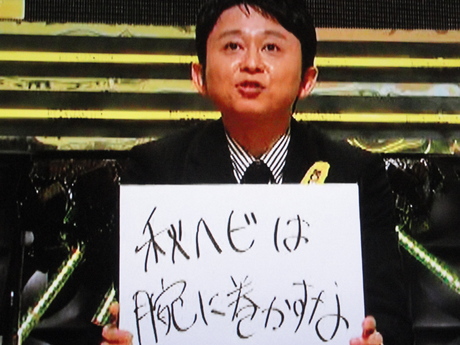 秋ヘビは
腕に巻かすな